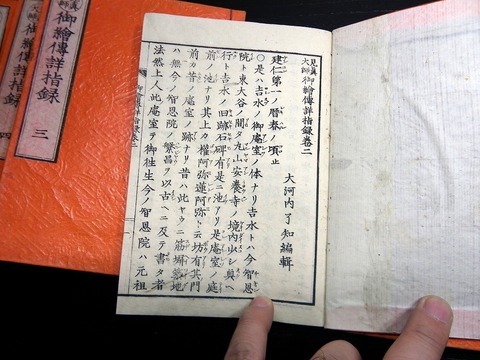 見真大師 御繪傳詳指録卷二
大河内了知編輯
建仁第一ノ暦春ノ頃止
〇是ハ吉水ノ御庵室ノ体ナリ吉水トハ今智恩
院ト東大谷ノ間タ丸山安養寺ノ境内少シ奥ヘ
行ト吉水ノ旧跡石碑有是ニ池アリ是庵室ノ庭
前ノ池ナリ其上カ權阿弥蓮阿弥ト云坊有其門
前カ昔ノ庵室ノ跡ナリ昔ハ此ヤウニ筋塀墓地
ハ無今ノ智恩院ノ繁昌ヲ以古ヘニ及テ書タ者
法然上人此庵室ニテ御往生今ノ智恩院ハ元祖
御繪傳詳指録 三
御繪傳詳指録
四